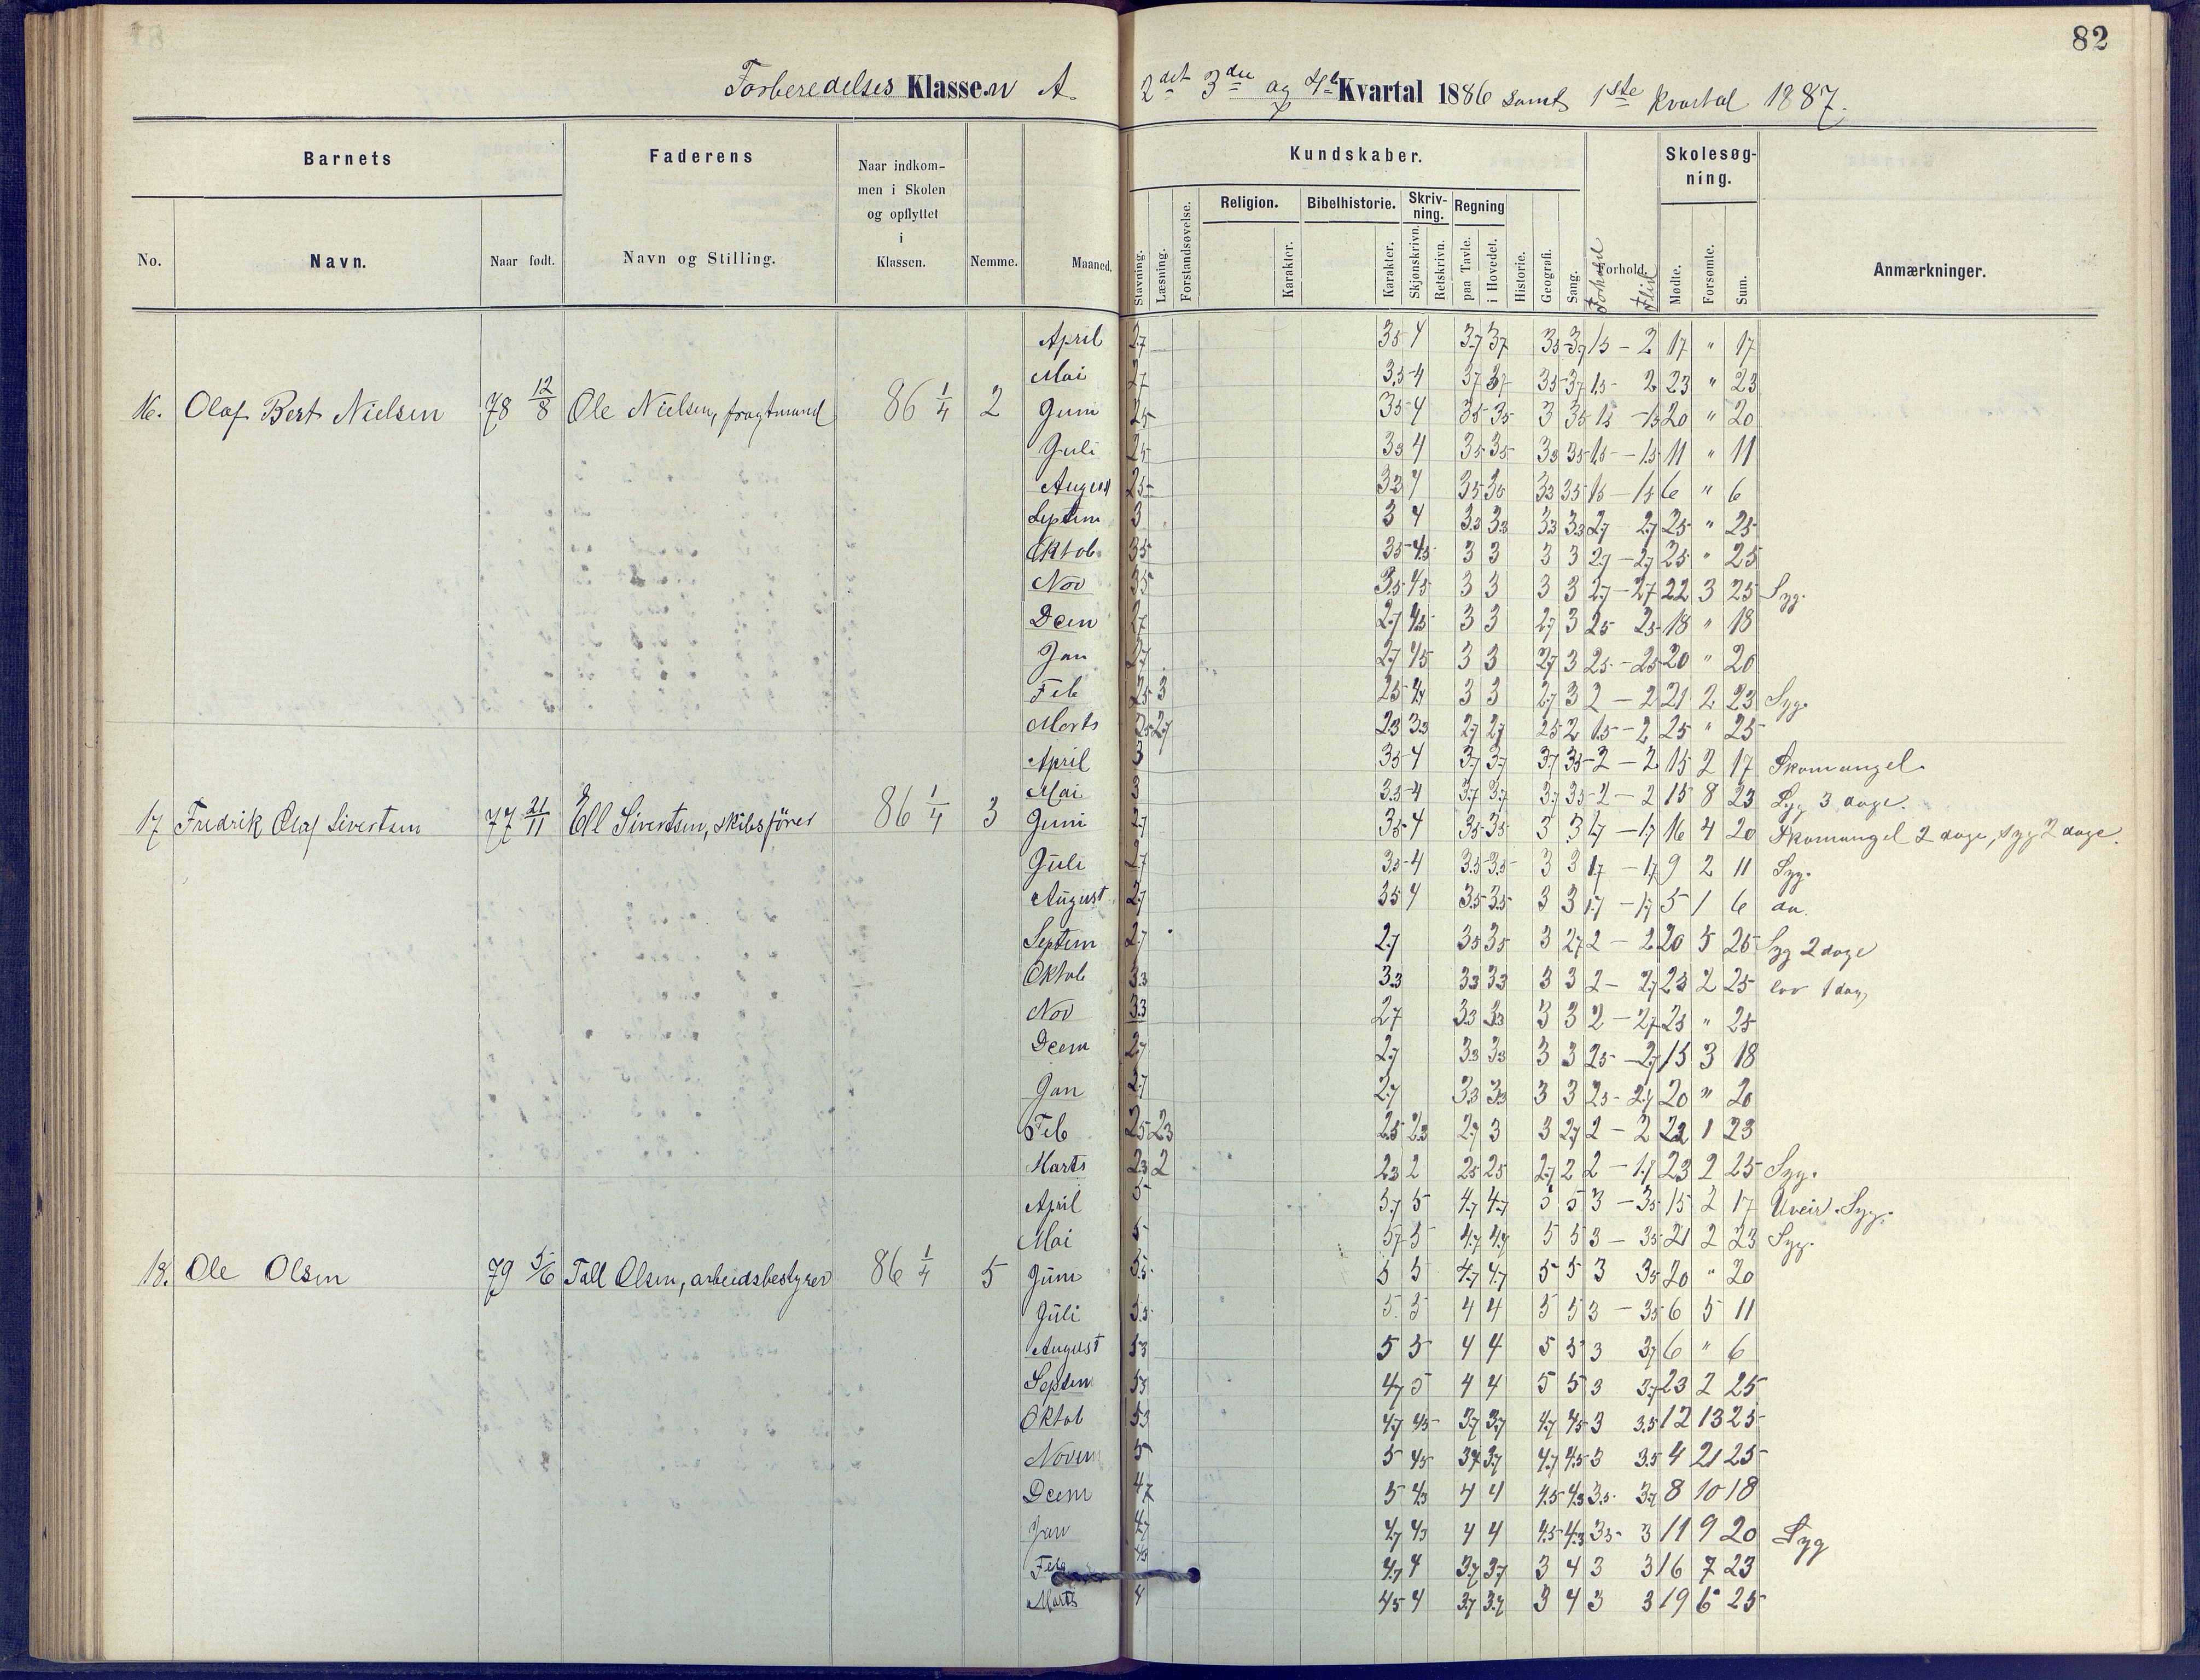 82
Forberedelses Klassen A 2det 3die og 4de Kvartal 1886 samt 1ste Kvartal 1887.
Barnets Faderens Naar indkom- Kundskaber. Skolesøg-
men i Skolen ning.
og opflyttet Religion. Bibelhistorie. Skriv- Regning
i ning.
No. Navn. Naar født. Navn og Stilling. Klassen. Nemme. Maaned. Stavning. Læsning. Forstandsøvelse. Karakter. Karakter. Skjønskrivn. Retskrivn. paa Tavle. i Hovedet. Historie. Geografi. Sang. Forhold. Forhold Flid Mødte. Forsømte. Sum. Anmærkninger.
April 2.7 3.5 4 3.7 3.7 3.5 3.7 1.5 - 2 17 " 17
Mai 2.7 3.5 4 3.7 3.7 3.5 3.7 1.5 - 2 23 " 23
16. Olaf Bert Nielsen 78 12/8 Ole Nielsen, fragtmand 86 1/4 2 Juni 2.5 3.5 4 3.5 3.5 3 3.5 1.5 - 1.5 20 " 20
Juli 2.5 3.3 4 3.5 3.5 3.3 3.5 1.5 - 1.5 11 " 11
August 2.5 3.3 4 3.5 3.5 3.3 3.5 1.5 - 1.5 6 " 6
Septem 3 3 4 3.3 3.3 3.3 3.3 2.7 2.7 25 " 25
Oktob. 3.5 3.5 4.5 3 3 3 3 2.7 - 2.7 25 " 25
Nov 3.5 3.5 4.5 3 3 3 3 2.7 - 2.7 22 3 25 Syg.
Decm 2.7 2.7 4.5 3 3 2.7 3 2.5 2.5 18 " 18
Jan 2.7 2.7 4.5 3 3 2.7 3 2.5 - 2.5 20 " 20
Feb 2.5 3 2.5 4 3 3 2.7 3 2 - 2 21 2 23 Syg.
Marts 2.5 2.7 2.3 3.3 2.7 2.7 2.5 2 1.5 - 2 25 " 25
April 3 3.5 4 3.7 3.7 3.7 3.5 2 - 2 15 2 17 Skomangel.
Mai 3 3.5 4 3.7 3.7 3.7 3.5 2 - 2 15 8 23 Syg 3 dage.
17 Fredrik Olaf Sivertsen 77 21/11 Ell Sivertsen, skibsförer 86 1/4 3 Juni 2.7 3.5 4 3.5 3.5 3 3 1.7 - 1.7 16 4 20 Skomangel 2 dage, syg 2 dage.
Juli 2.7 3.5 4 3.5 3.5 3 3 1.7 - 1.7 9 2 11 Syg.
August 2.7 3.5 4 3.5 3.5 3 3 1.7 - 1.7 5 1 6 do.
Septem 2.7 2.7 3.5 3.5 3 2.7 2 - 2 20 5 25 Syg 2 dage
Oktob 3.3 3.3 3.3 3.3 3 3 2 - 2.7 23 2 25 lov 1 dag
Nov 3.3 2.7 3.3 3.3 3 3 2 - 2.7 25 " 25
Decem 2.7 2.7 3.3 3.3 3 3 2.5 - 2.7 15 3 18
Jan 2.7 2.7 3.3 3.3 3 3 2.5 - 2.7 20 " 20
Feb 2.5 2.3 2.5 2.3 2.7 3 3 2.7 2 - 2 22 1 23
Marts 2.3 2 2.3 2 2.5 2.5 2.7 2 2 - 1.7 23 2 25 Syg.
April 5 5.7 5 4.7 4.7 5 5 3 - 3.5 15 2 17 Uveir. Syg.
Mai 5 5.7 5 4.7 4.7 5 5 3 - 3.5 21 2 23 Syg.
18. Ole Olsen 79 5/6 Tall Olsen, arbeidsbestyrer 86 1/4 5 Juni 5.5 5 5 4.7 4.7 5 5 3 3.5 20 " 20
Juli 5.5 5 5 4 4 5 5 3 - 3.5 6 5 11
August 5.3 5 5 4 4 5 5 3 3.7 6 " 6
Septem 5.3 4.7 5 4 4 5 5 3 3.7 23 2 25
Oktob 5.3 4.7 4.5 3.7 3.7 4.7 4.5 3 3.5 12 13 25
Novem 5 5 4.5 3.7 3.7 4.7 4.5 3 3.5 4 21 25
Decem 4.7 5 4.3 4 4 4.5 4.3 3.5 3.7 8 10 18
Jan 4.7 4.7 4.3 4 4 4.5 4.3 3.5 - 3 11 9 20 Syg
Feb 4.3 4.7 4 3.7 3.7 3 4 3 3 16 7 23
Marts 4 4.5 4 3.7 3.7 3 4 3 3 19 6 25